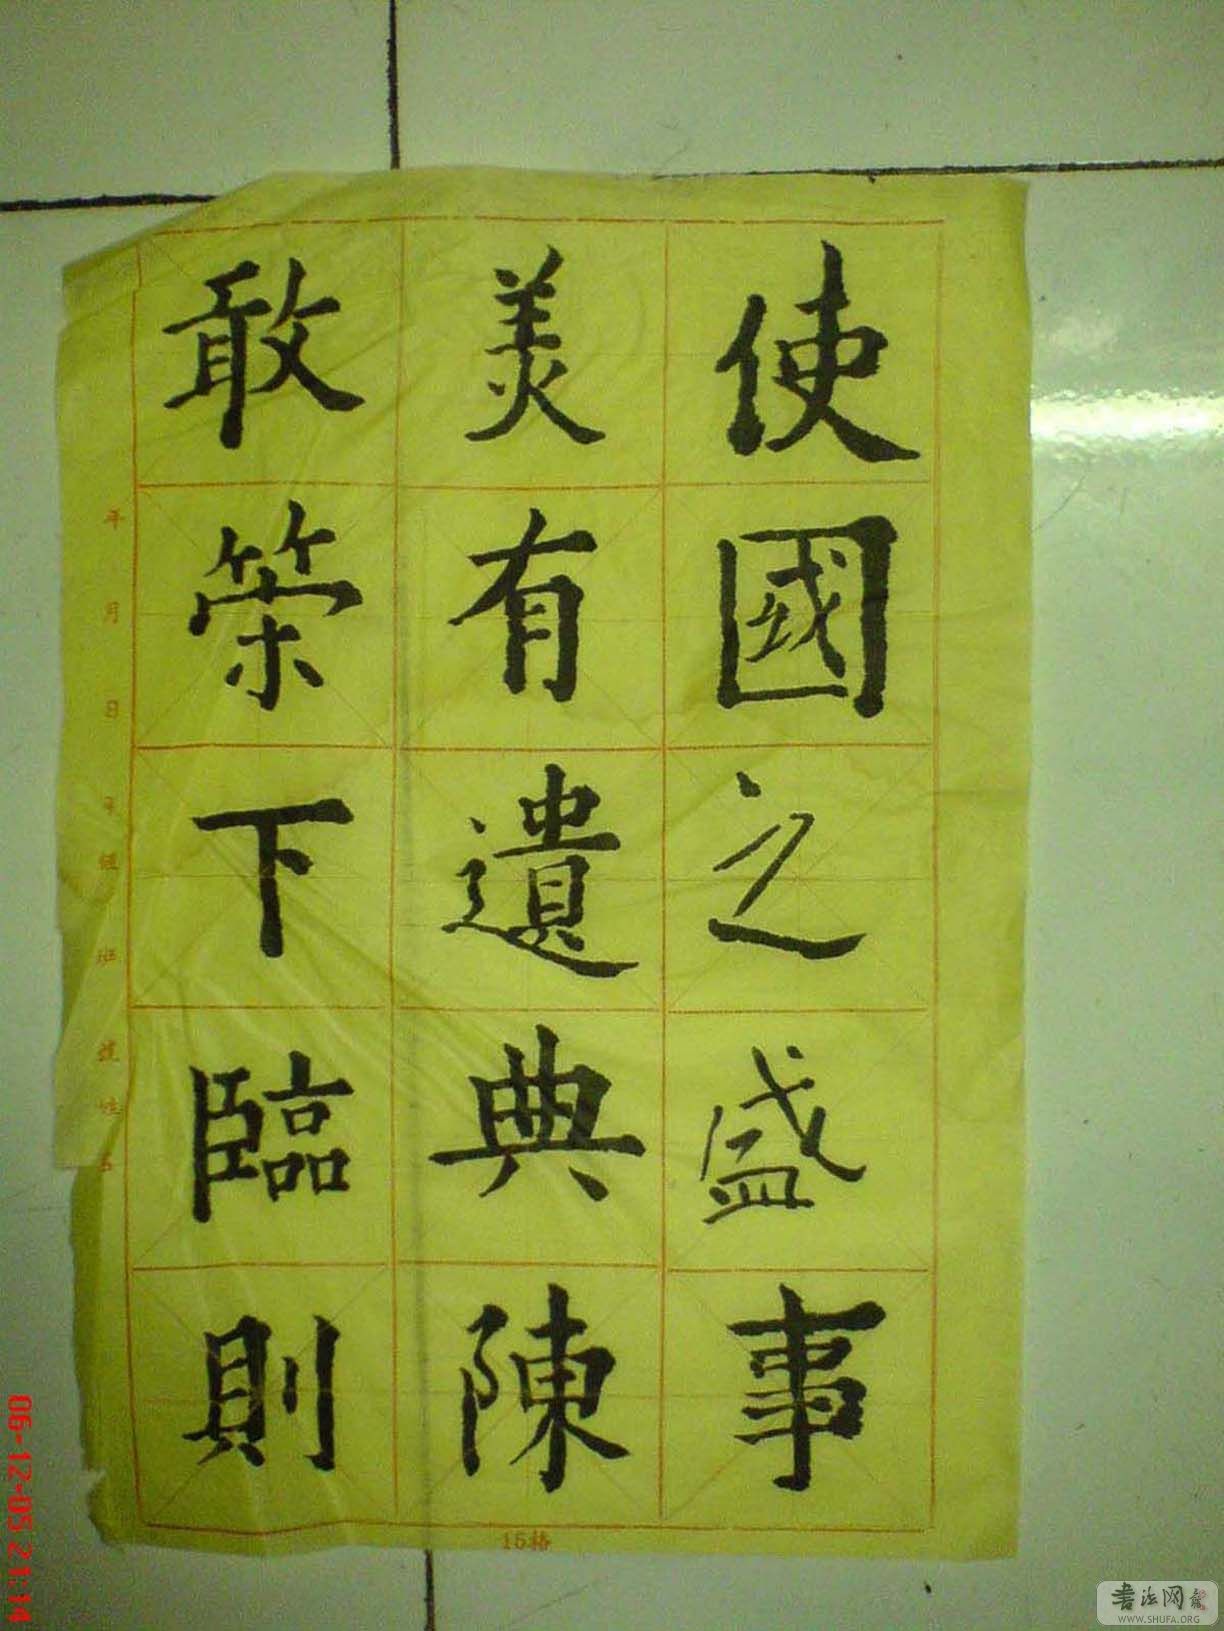 使國之盛事
美有遺典陳
敢策下臨則
年 月 日 年級 班 號 姓名
15格
06-12-05 21:14
书法网
WWW.SHUFA.ORG